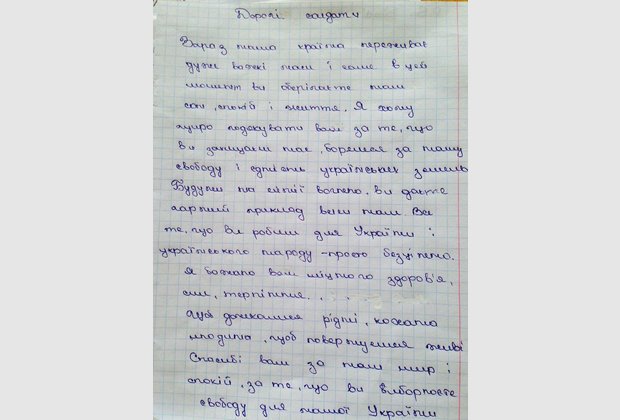 Дорогі солдати
Зараз наша країна переживає
дуже важкі часи і саме в цей
момент ви оберігаєте наш
сон, спокій і життя. Я хочу
щиро подякувати вам за те, що
ви захищаєте нас, боретеся за нашу
свободу і єдність українських земель
Будучи на лінії вогню, ви даєте
гарний приклад всім нам. Все
те, що ви робите для України і
українського народу - просто безцінно.
Я бажаю вам міцного здоров'я,
сил, терпіння...
щоб дочекалися рідні, кохана
людина, щоб повернулися живі
Спасибі вам за наш мир і
спокій, за те, що ви виборюєте
свободу для нашої України